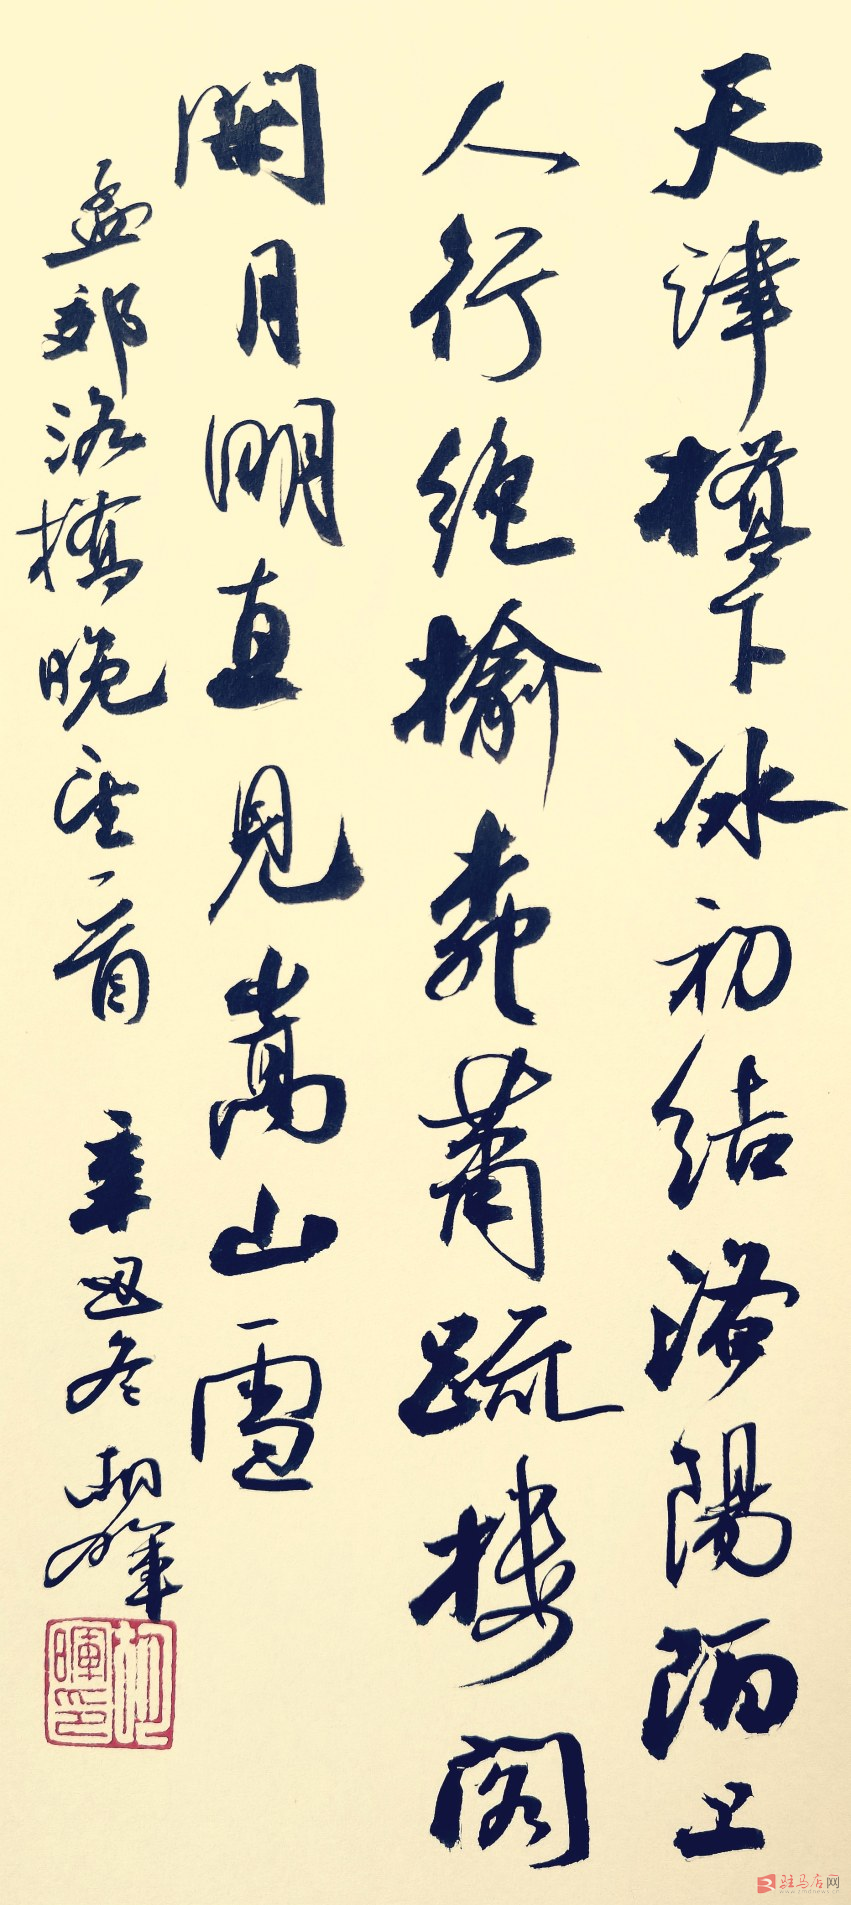 天津橋下冰初結洛陽陌上
人行絕榆柳蕭疏樓閣
閑月明直見嵩山雪
孟郊洛橋晚望一首 辛丑冬
暉印
驻马店网
www.zmdnews.cn